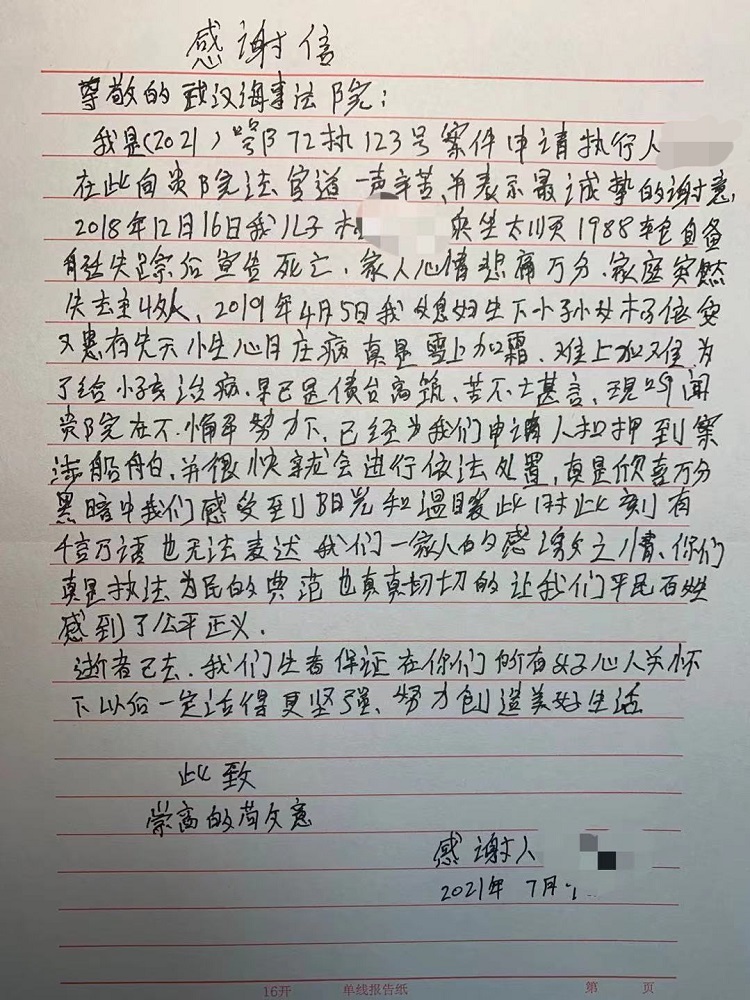 感谢信
尊敬的武汉海事法院：
我是(2021)鄂72执123号案件申请执行人
在此向贵院法官道一声辛苦,并表示最诚挚的谢意,
2018年12月16日我儿子 乘坐太顺1988轮自备
船失踪后宣告死亡、家人心情悲痛万分.家庭突然
失去主，2019年4月5日我媳妇生下小孙女
又患有先天性心脏病真是雪上加霜.难上加难、为
了给小孩治病.早已是债台高筑、苦不堪言，现听闻
贵院在不懈努力下、已经为我们申请人扣押到案
涉船舶、并很快就会进行依法处置,真是欣喜万分
黑暗中我们感受到阳光和温暖此时此刻有
千言万语也无法表达我们一家人的感谢之情、你们
真是执法为民的典范也真真切切的让我们平民百姓
感到了公平正义.
逝者已去.我们生者保证在你们所有好心人关怀
下以后一定活得更坚强、努力创造美好生活
此致
崇高的敬意
感谢人
2021年7月
16开 单线报告纸 第 页